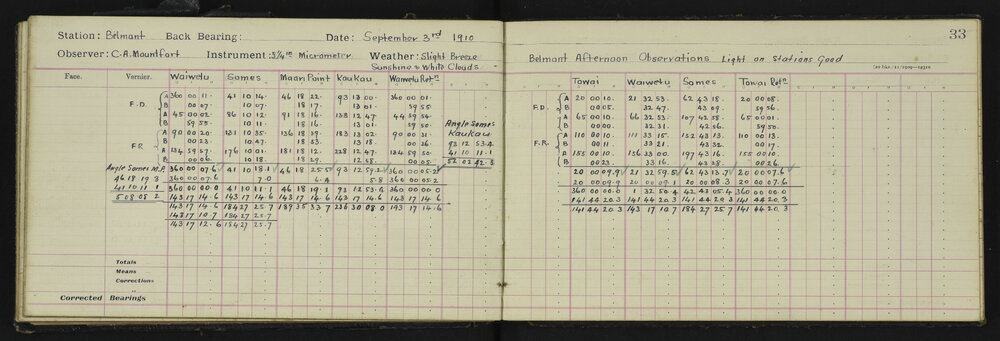 Station: Belmont Back Bearing: Date: September 3rd 1910
Observer: C.A. Mountfort Instrument: Micrometer Weather: Slight Breeze
Sunshine & White Clouds
Face. Vernier. Waiwetu Somes Maari Point Kaukau Waiwetu Retn
A 360 00 11. 41 10 14. 46 18 22. 93 13 00. 360 00 01.
F.D. B 00 07. 10 07. 18 17. 13 01. 59 55
A 45 00 02. 86 10 12. 91 18 16. 138 12 47 44 59 54.
B 59 55. 10 11. 18 16. 13 01. 59 50. Angle Somes
A 90 00 20. 131 10 35. 136 18 39. 183 13 02. 90 00 31. Kaukau
F R B 00 13. 10 27. 18 33. 13 18. 00 26. 93 12 53.4
A 134 59 57. 176 10 01. 181 18 12. 228 12 47. 134 59 50. 41 10 11.1
B 00 06. 10 18. 18 29. 12 58. 00 05. 52 02 42.3
Angle Somes M.P. 360 00 07.6 41 10 18.1 46 18 25.5 93 12 59.2 360 00 05.2
46 18 19.3 360 00 07.6 7.0 6.4 5.8 360 00 05.2
41 10 11.1 360 00 00.0 41 10 11.1 46 18 19.1 93 12 53.4 360 00 00.0
5 08 08 2 143 17 14.6 143 17 14.6 143 17 14.6 143 17 14.6 143 17 14.6
143 17 14.6 184 27 25.7 189 35 33.7 236 30 08.0 143 17 14.6
143 17 10.7 184 27 25.7
143 17 12.6 184 27 25.7
Totals
Means
Corrections
Corrected Bearings
33
Belmont Afternoon Observations Light on Stations Good
Towai Waiwetu Somes Towai Retn
A 20 00 10. 21 32 53. 62 43 18. 20 00 08.
F.D. B 00 05. 32 47. 43 09. 59 56.
A 65 00 10. 66 32 53. 107 42 58. 65 00 01.
B 00 00. 32 31. 42 56. 59 50.
A 110 00 10. 111 33 15. 152 43 13. 110 00 13.
F.R. B 00 11. 33 21. 43 32. 00 17.
A 155 00 10. 156 33 00. 197 43 16. 155 00 10.
B 00 23. 33 16. 43 28. 00 26.
20 00 09.9 21 32 59.5 62 43 13.7 20 00 07.6
20 00 09.9 20 00 09.1 20 00 08.3 20 00 07.6
360 00 00.0 1 32 50.4 42 43 05.4 360 00 00.0
141 44 20.3 141 44 20.3 141 44 20.3 141 44 20.3
141 44 20.3 143 17 10.7 184 27 25.7 141 44 20.3